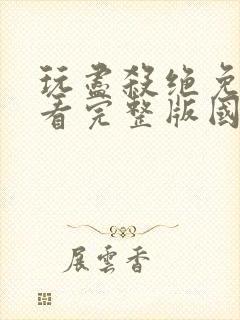 玩盡殺绝免
看完整版國
展雲香